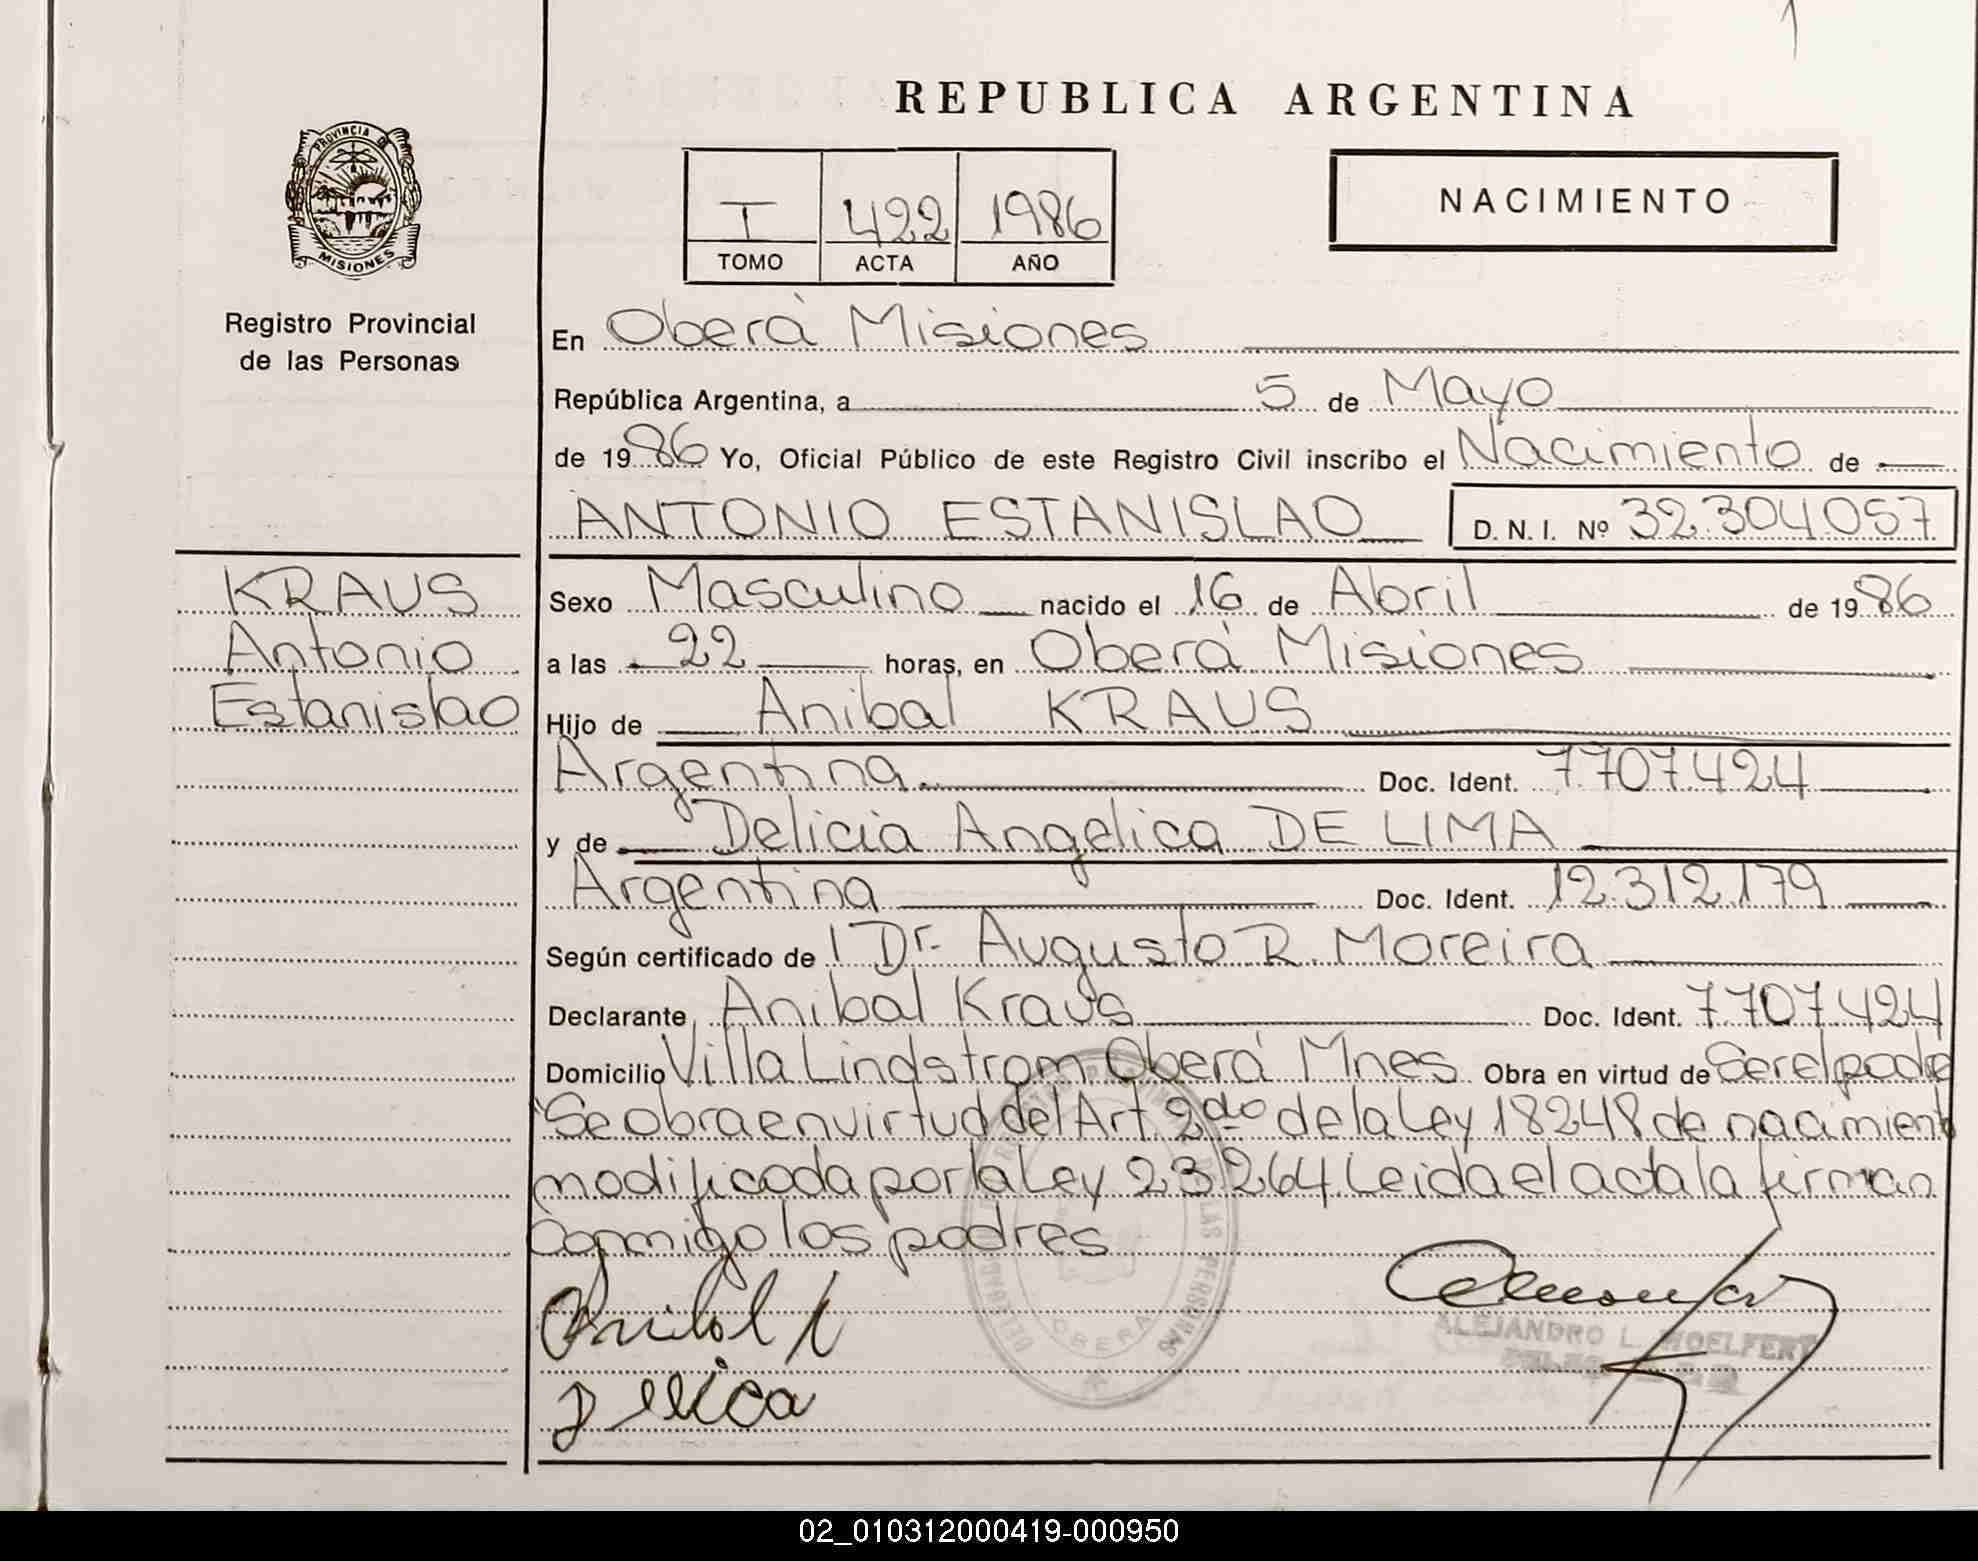 REPUBLICA ARGENTINA
PROVINCIA DE
MISIONES
Registro Provincial
de las Personas
I 422 1986
TOMO ACTA AÑO
NACIMIENTO
En Oberá Misiones
República Argentina, a 5 de Mayo
de 1986 Yo, Oficial Público de este Registro Civil inscribo el Nacimiento de
ANTONIO ESTANISLAO D. N. I. Nº 32.304.057
KRAUS
Antonio
Estanislao
Sexo Masculino nacido el 16 de Abril de 1986
a las 22 horas, en Oberá Misiones
Hijo de Anibal KRAUS
Argentina Doc. Ident. 7.707.424
y de Delicia Angelica DE LIMA
Argentina Doc. Ident. 12.312.179
Según certificado de l Dr. Augusto R. Moreira
Declarante Anibal Kraus Doc. Ident. 7.707.424
Domicilio Villa Lindstrom Oberá Mnes Obra en virtud de Ser el padre
Se obra en virtud del Art. 2do de la Ley 18248 de nacimiento
modificada por la Ley 23.264. Leida el acta la firman
conmigo los padres
Anibal K
DE LAS PERSONAS
OBERA
ALEJANDRO L.
02_010312000419-000950